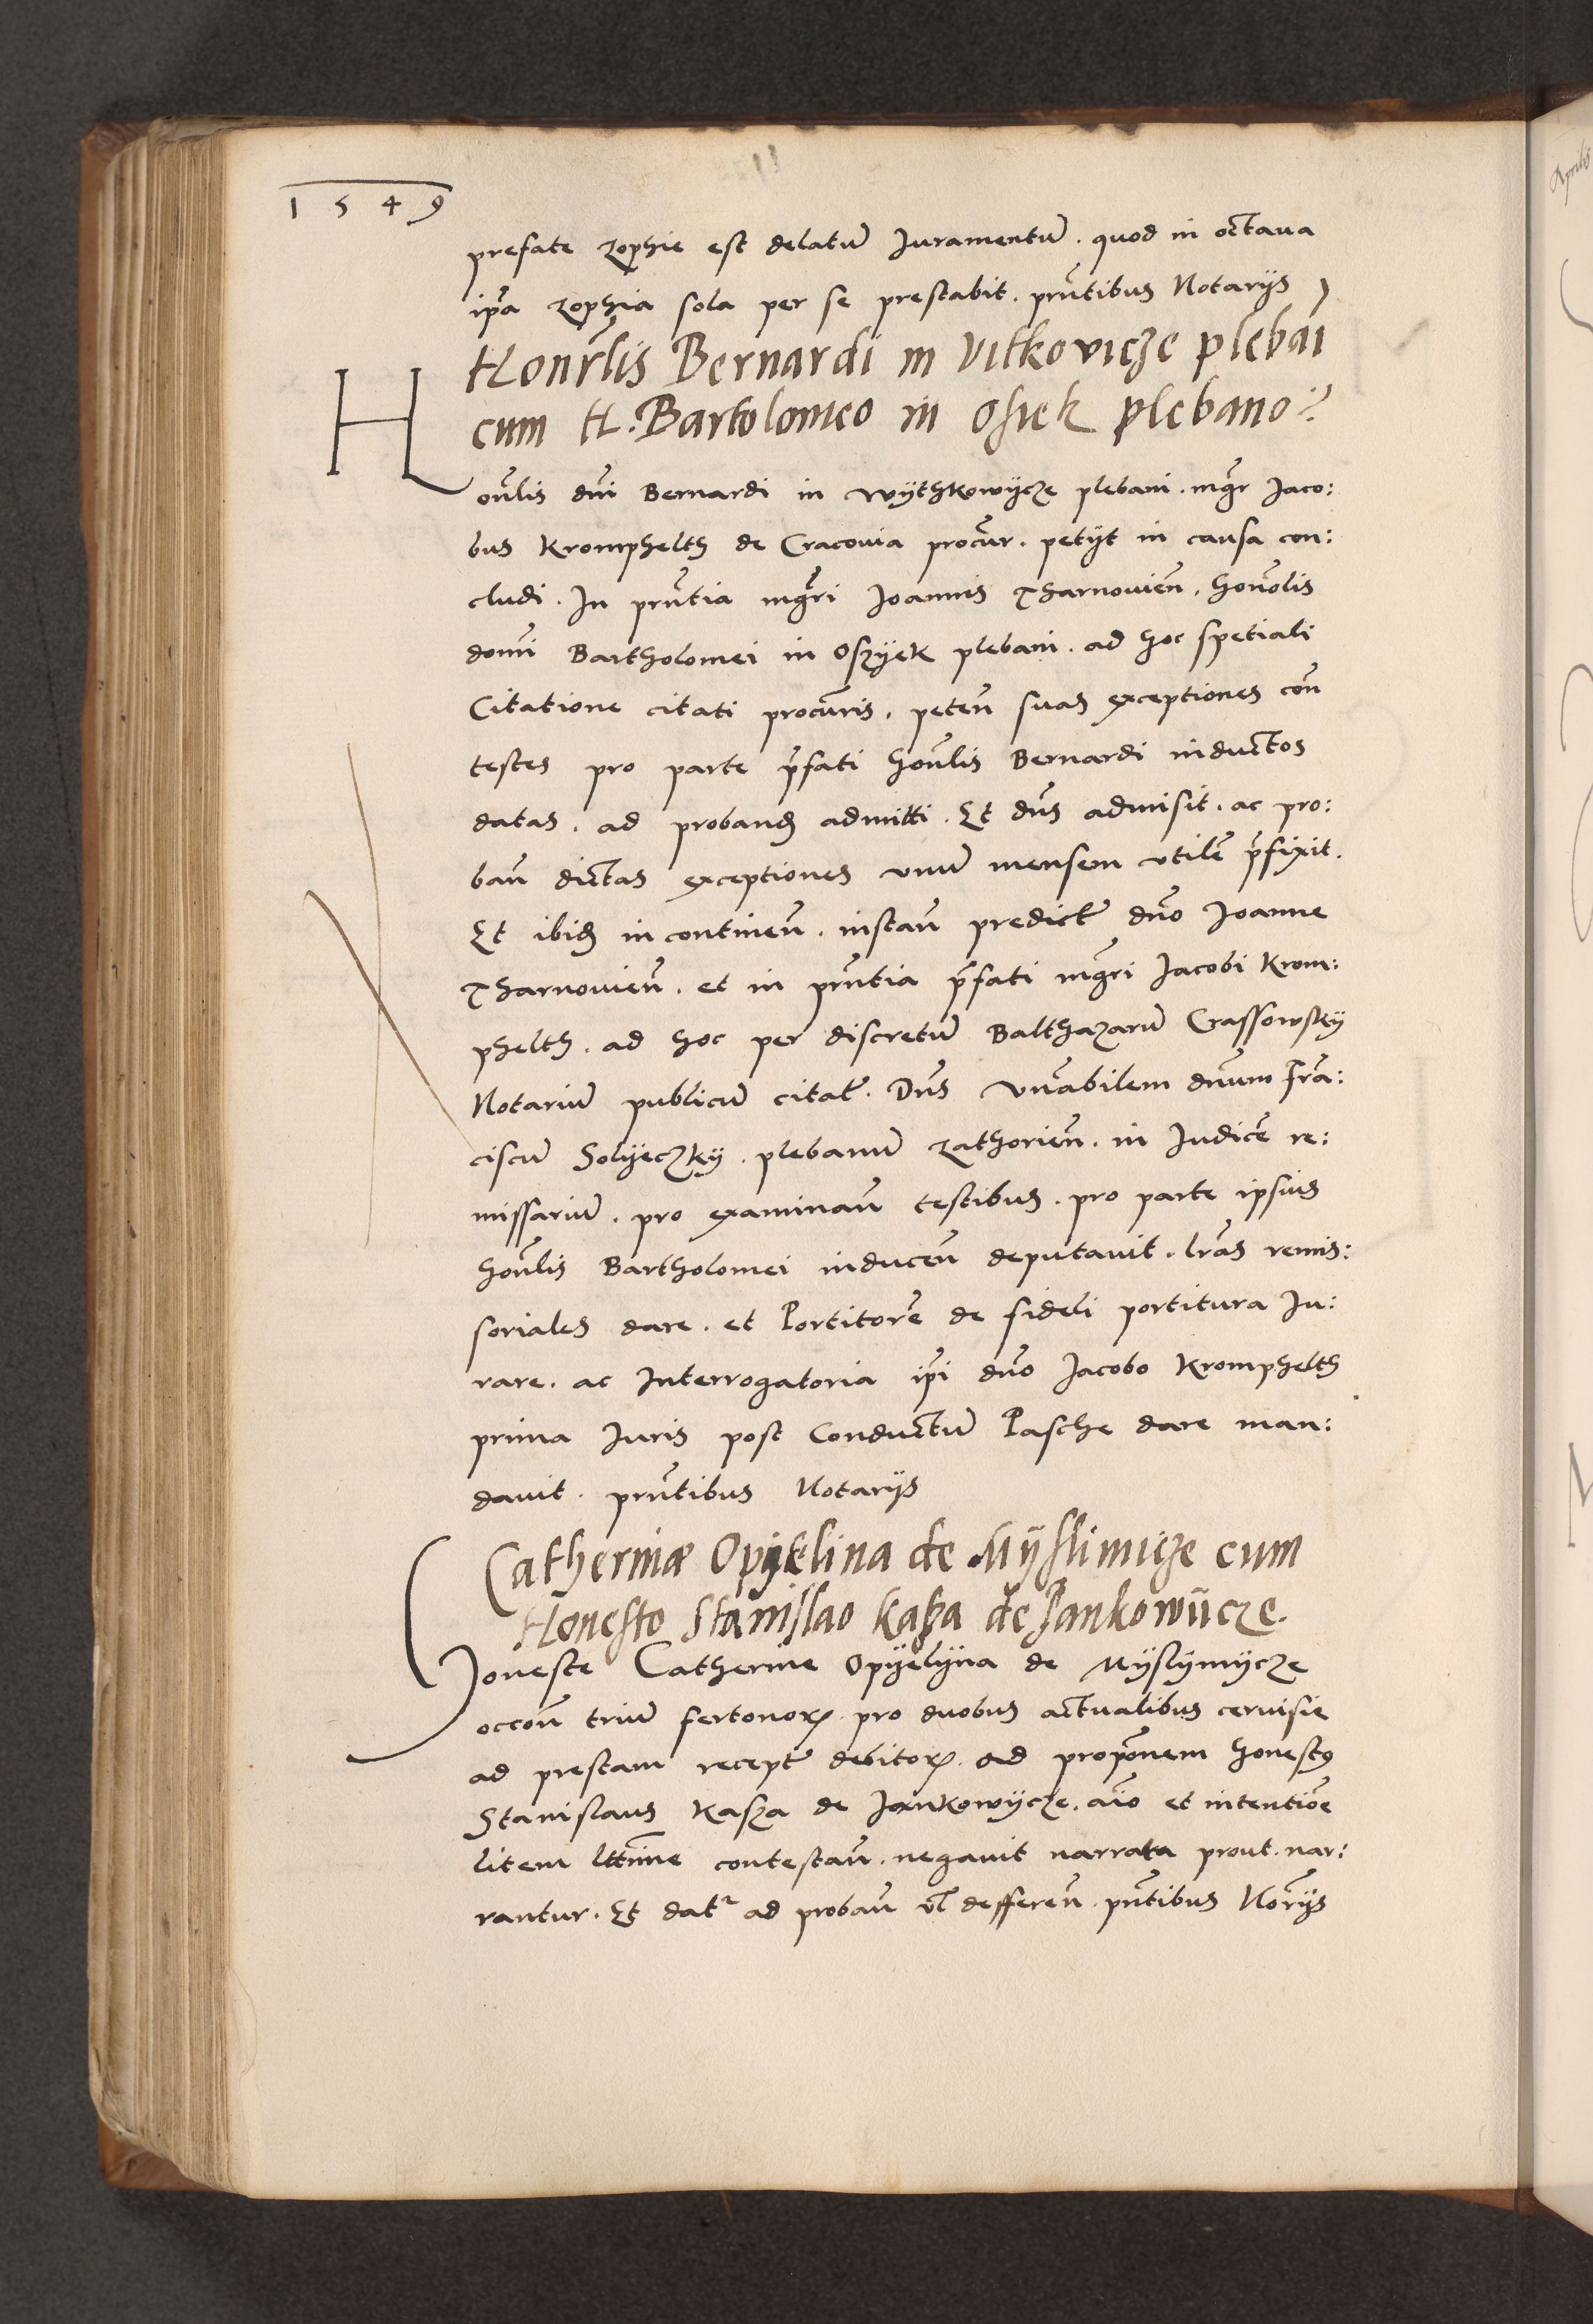 1549
prefate zophie est delatũ Iuramentũ. quod in octava
ip̃a zophia sola per se prestabit. pñtibus Notarijs
Honr̃lis Bernardi in Vitkovicze plebãi
cum H. Bartolomeo in Osiek plebano
Hoñlis dñi Bernardi in Wythkowycze plebani. mgr̃ Jaco:
bus Kromphelth de Cracovia procũr. petijt in causa con:
cludi. In pñtia mgr̃i Joannis Tharnovieñ. hoñolis
domi Bartholomei in Oszyek plebani. ad hoc spetiali
Citatione citati procũris. peteñ suas exceptiones coñ
testes pro parte p̃fati hoñlis Bernardi inductos
datas. ad proband admitti. Et dñs admisit. ac pro:
bañ dictas exceptiones unũ mensem utilẽ p̃fixit.
Et ibid in contineñ. instañ predict dño Joanne
Tharnovieñ. et in pñtia p̃fati mgr̃i Jacobi Krom:
phelth. ad hoc per discretũ Balthazarũ Crassowsky
Notariũ publicũ citat̃. Dñs Vñabilem dñum Frã:
ciscũ Solyeczky. plebanũ zathorieñ. in Judicẽ re:
missariũ. pro examinañ testibus. pro parte ipsius
hoñlis Bartholomei induceñ deputavit. lr̃as remis:
soriales dare. et Portitorẽ de fideli portitura Iu:
rare. ac Interrogatoria ip̃i dño Jacobo Kromphelth
prima Iuris post Conductũ Pasche dare man:
davit. pñtibus Notarijs
Catherinæ Opijelina de Mÿslimicze cum
Honesto Stanislao Kasza de Jankowÿcze.
Honeste Catherine Opyelyna de Myslymycze
occoñ triũ fertonoꝝ. pro duobus actualibus cervisie
ad prestam recept̃ debitoꝝ. ad propõnem honestꝰ
Stanislaus Kasza de Jankowycze. aĩo et intentiõe
litem lttim̃e contestañ. negavit narrata prout. nar:
rantur. Et dat᷑ ad probañ vl̃ defferen̄. pñtibus Nor̃ijs
Aprilis